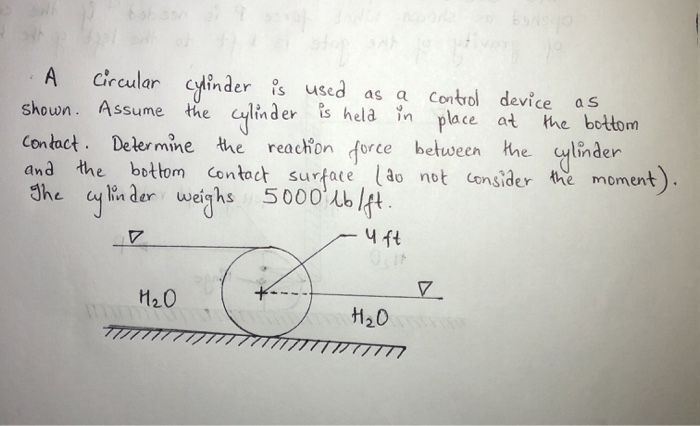 A Circular cylinder is used as a control device as
shown. Assume the cylinder is held in place at the bottom
Contact. Determine the reaction force between the cylinder
and the bottom contact surface (do not consider the moment).
The cylinder weighs 5000 lb/ft.
4 ft
H₂O
H₂O